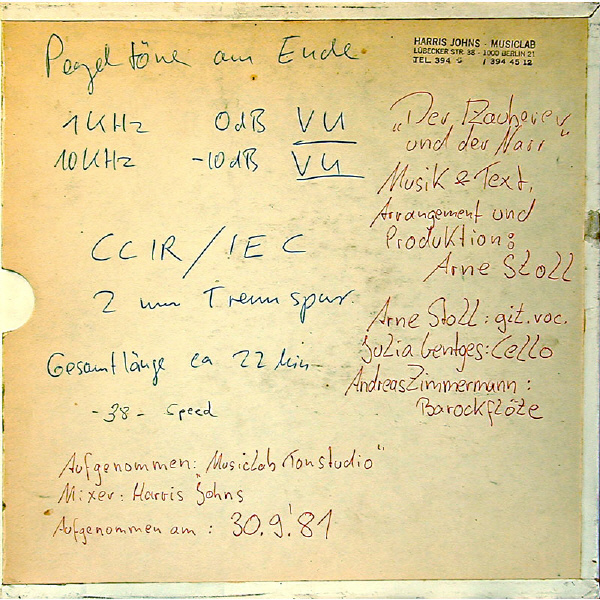 Pegeltöne am Ende
HARRIS JOHNS - MUSICLAB
LÜBECKER STR. 38 - 1000 BERLIN 21
TEL. 394 / 394 45 12
1KHz 0dB VU
10KHz -10dB VU
CCIR/IEC
2 mm Trennspur
Gesamtlänge ca 22 Min
-38- Speed
"Der Zauberer
und der Narr"
Musik & Text,
Arrangement und
Produktion:
Arne Stoll
Arne Stoll: git. voc.
Julia Gentges: Cello
Andreas Zimmermann:
Barockflöte
Aufgenommen: "MusicLab Tonstudio"
Mixer: Harris Johns
Aufgenommen am: 30.9.'81